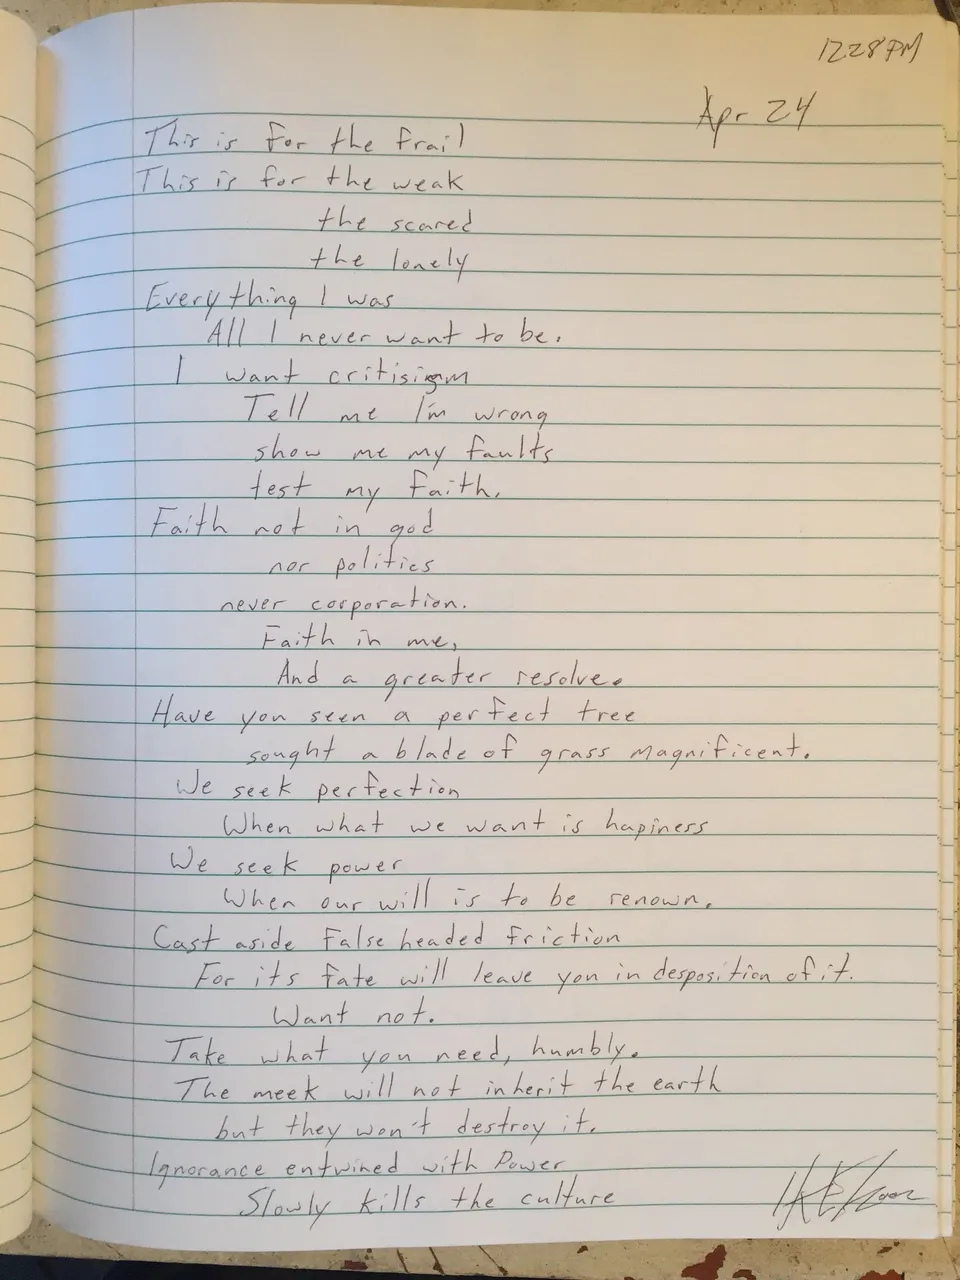 1228PM
Apr 24
This is for the frail
This is for the weak
the scared
the lonely
Everything I was
All I never want to be.
I want critisism
Tell me I'm wrong
show me my faults
test my faith.
Faith not in god
nor politics
never corporation.
Faith in me,
And a greater resolve.
Have you seen a perfect tree
sought a blade of grass magnificent.
We seek perfection
When what we want is hapiness
We seek power
When our will is to be renown.
Cast aside false headed friction
For its fate will leave you in desposition of it.
Want not.
Take what you need, humbly.
The meek will not inherit the earth
but they won't destroy it.
Ignorance entwined with Power
Slowly kills the culture